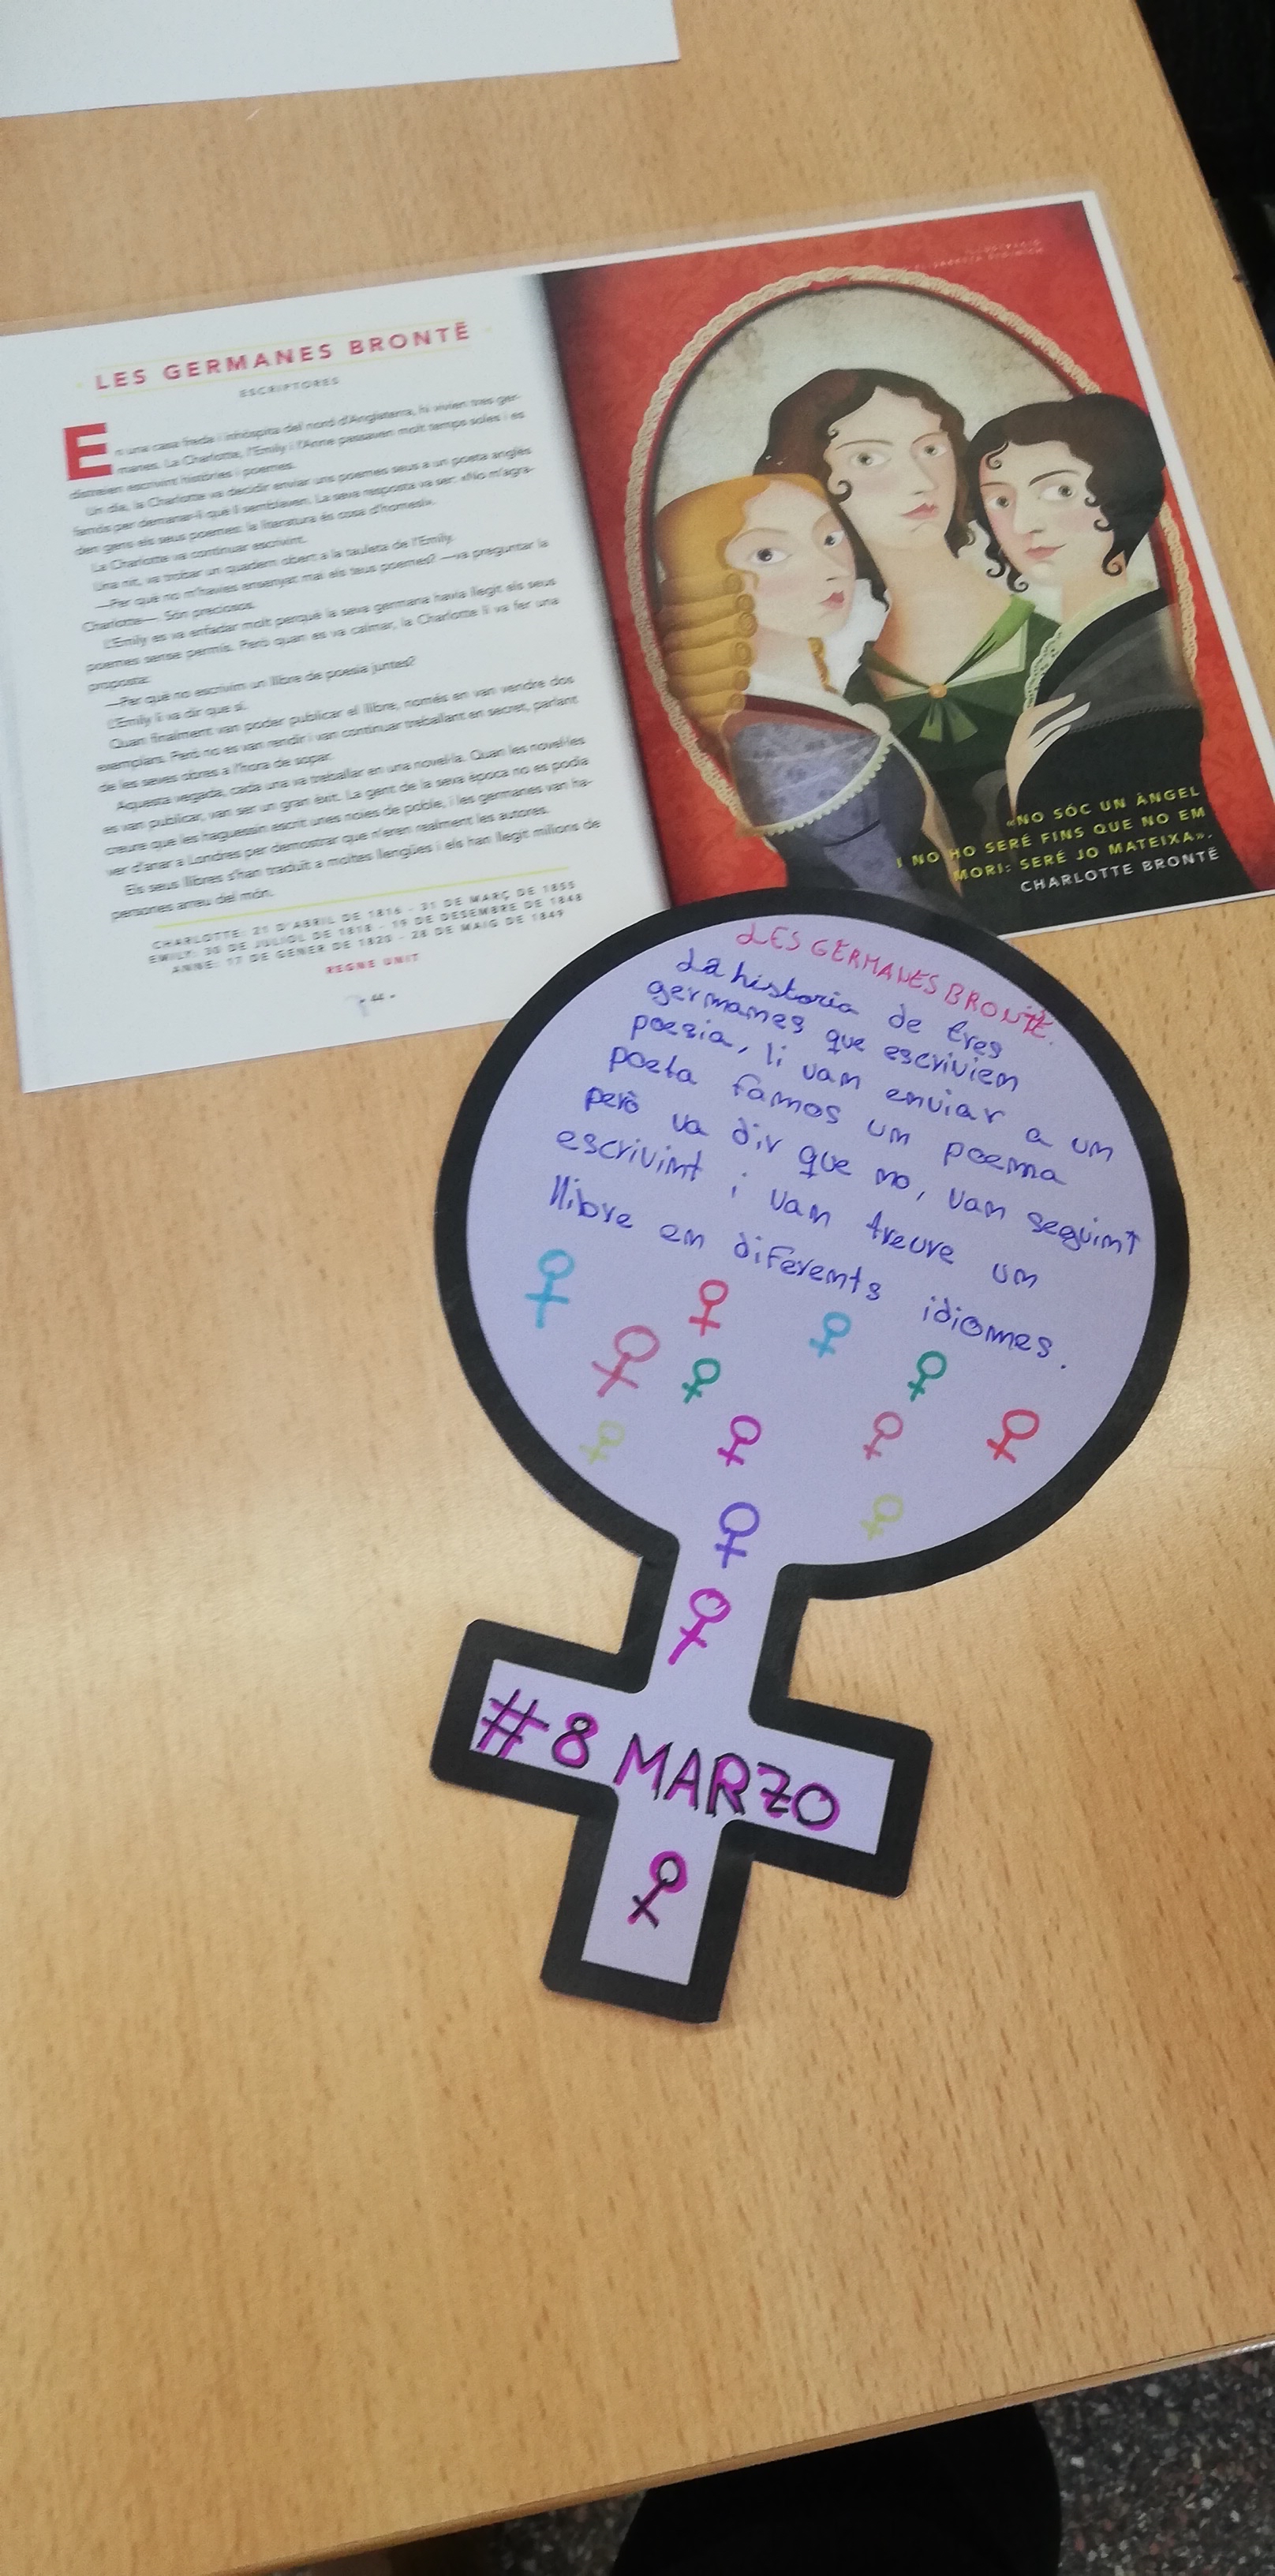 LES GERMANES BRONTË
ESCRIPTORES
En una casa freda i inhòspita del nord d'Anglaterra, hi vivien tres ger-
manes. La Charlotte, l'Emily i l'Anne passaven molt temps soles i es
distreien escrivint històries i poemes.
Un dia, la Charlotte va decidir enviar uns poemes seus a un poeta anglès
famós per demanar-li què li semblaven. La seva resposta va ser: «No m'agra-
den gens els seus poemes: la literatura és cosa d'homes!».
La Charlotte va continuar escrivint.
Una nit, va trobar un quadern obert a la tauleta de l'Emily.
—Per què no m'havies ensenyat mai els teus poemes? —va preguntar la
Charlotte—. Són preciosos.
L'Emily es va enfadar molt perquè la seva germana havia llegit els seus
poemes sense permís. Però quan es va calmar, la Charlotte li va fer una
proposta:
—Per què no escrivim un llibre de poesia juntes?
L'Emily li va dir que sí.
Quan finalment van poder publicar el llibre, només en van vendre dos
exemplars. Però no es van rendir i van continuar treballant en secret, parlant
de les seves obres a l'hora de sopar.
Aquesta vegada, cada una va treballar en una novel·la. Quan les novel·les
es van publicar, van ser un gran èxit. La gent de la seva època no es podia
creure que les haguessin escrit unes noies de poble, i les germanes van ha-
ver d'anar a Londres per demostrar que n'eren realment les autores.
Els seus llibres s'han traduït a moltes llengües i els han llegit milions de
persones arreu del món.
CHARLOTTE: 21 D'ABRIL DE 1816 - 31 DE MARÇ DE 1855
EMILY: 30 DE JULIOL DE 1818 - 19 DE DESEMBRE DE 1848
ANNE: 17 DE GENER DE 1820 - 28 DE MAIG DE 1849
REGNE UNIT
44
«NO SÓC UN ÀNGEL
I NO HO SERÉ FINS QUE NO EM
MORI: SERÉ JO MATEIXA».
CHARLOTTE BRONTË
LES GERMANES BRONTË.
La historia de tres
germanes que escrivien
poesia, li van enviar a un
poeta famos un poema
però va dir que no, van seguint
escrivint i van treure un
llibre en diferents idiomes.
#8 MARZO